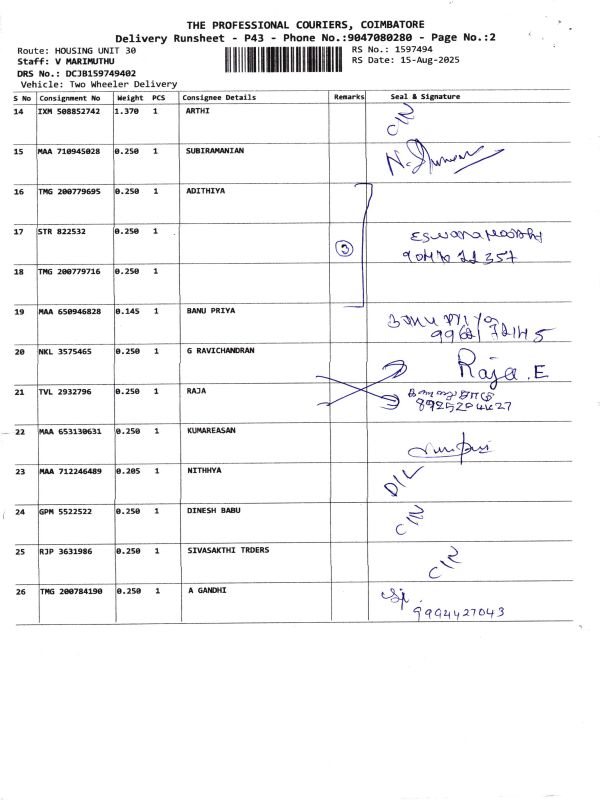 THE PROFESSIONAL COURIERS, COIMBATORE
Delivery Runsheet - P43 - Phone No.:9047080280 - Page No.:2
Route: HOUSING UNIT 30 RS No.: 1597494
Staff: V MARIMUTHU RS Date: 15-Aug-2025
DRS No.: DCJB159749402
Vehicle: Two Wheeler Delivery
S No Consignment No Weight PCS Consignee Details Remarks Seal & Signature
14 IXM 508852742 1.370 1 ARTHI
15 MAA 710945028 0.250 1 SUBIRAMANIAN
16 TMG 200779695 0.250 1 ADITHIYA
17 STR 822532 0.250 1 3
18 TMG 200779716 0.250 1
19 MAA 650946828 0.145 1 BANU PRIYA
20 NKL 3575465 0.250 1 G RAVICHANDRAN Raja.E
21 TVL 2932796 0.250 1 RAJA
22 MAA 653130631 0.250 1 KUMAREASAN
23 MAA 712246489 0.205 1 NITHHYA D/L
24 GPM 5522522 0.250 1 DINESH BABU
25 RJP 3631986 0.250 1 SIVASAKTHI TRDERS
26 TMG 200784190 0.250 1 A GANDHI
9994427043